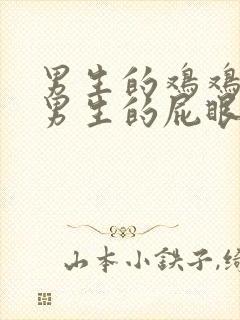 男生的鸡鸡
男生的屁眼
山本小鉄子,绮